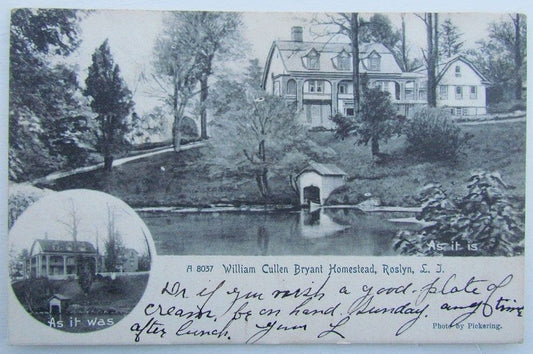 As it is
A 8037 William Cullen Bryant Homestead, Roslyn, L. I.
As it was
Dr if you wish a good plate of
cream, be on hand Sunday, any time
after lunch. Your L
Photo by Pickering.